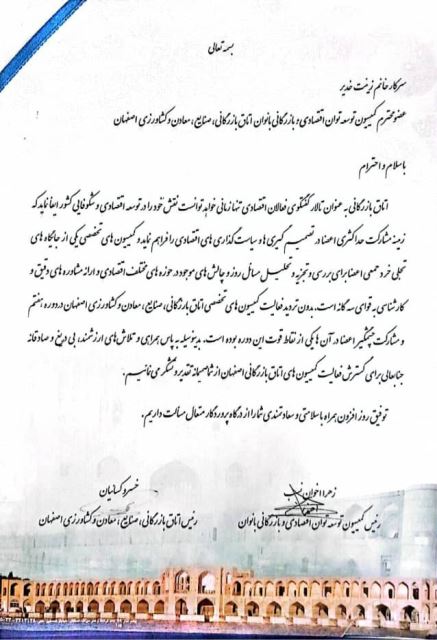 بسمه تعالی
سرکار خانم زینت غدیر
عضو محترم کمیسیون توسعه توان اقتصادی و بازرگانی بانوان اتاق بازرگانی، صنایع، معادن و کشاورزی اصفهان
با سلام و احترام
اتاق بازرگانی به عنوان تالار گفتگوی فعالان اقتصادی تنها زمانی خواهد توانست نقش خود را در توسعه اقتصادی و شکوفایی کشور ایفا نماید که
زمینه مشارکت حداکثری اعضا در تصمیم گیری ها و سیاست گذاری های اقتصادی را فراهم نماید و کمیسیون های تخصصی یکی از جایگاه های
تجلی خرد جمعی اعضا برای بررسی و تجزیه و تحلیل مسائل روز و چالش های موجود در حوزه های مختلف اقتصادی و ارائه مشاوره های دقیق و
کارشناسی به قوای سه گانه است. بدون تردید فعالیت کمیسیون های تخصصی اتاق بازرگانی، صنایع، معادن و کشاورزی اصفهان در دوره هفتم
و مشارکت چشمگیر اعضا در آن ها یکی از نقاط قوت این دوره بوده است. بدینوسیله به پاس همراهی و تلاش های ارزشمند، بی دریغ و صادقانه
جنابعالی برای گسترش فعالیت کمیسیون های اتاق بازرگانی اصفهان از شما صمیمانه تقدیر و تشکر می نمایم.
توفیق روز افزون همراه با سلامتی و سعادتمندی شما را از درگاه پروردگار متعال مسألت داریم.
زهرا اخوان نسب
رئیس کمیسیون توسعه توان اقتصادی و بازرگانی بانوان
خسرو کسائیان
رئیس اتاق بازرگانی، صنایع، معادن و کشاورزی اصفهان